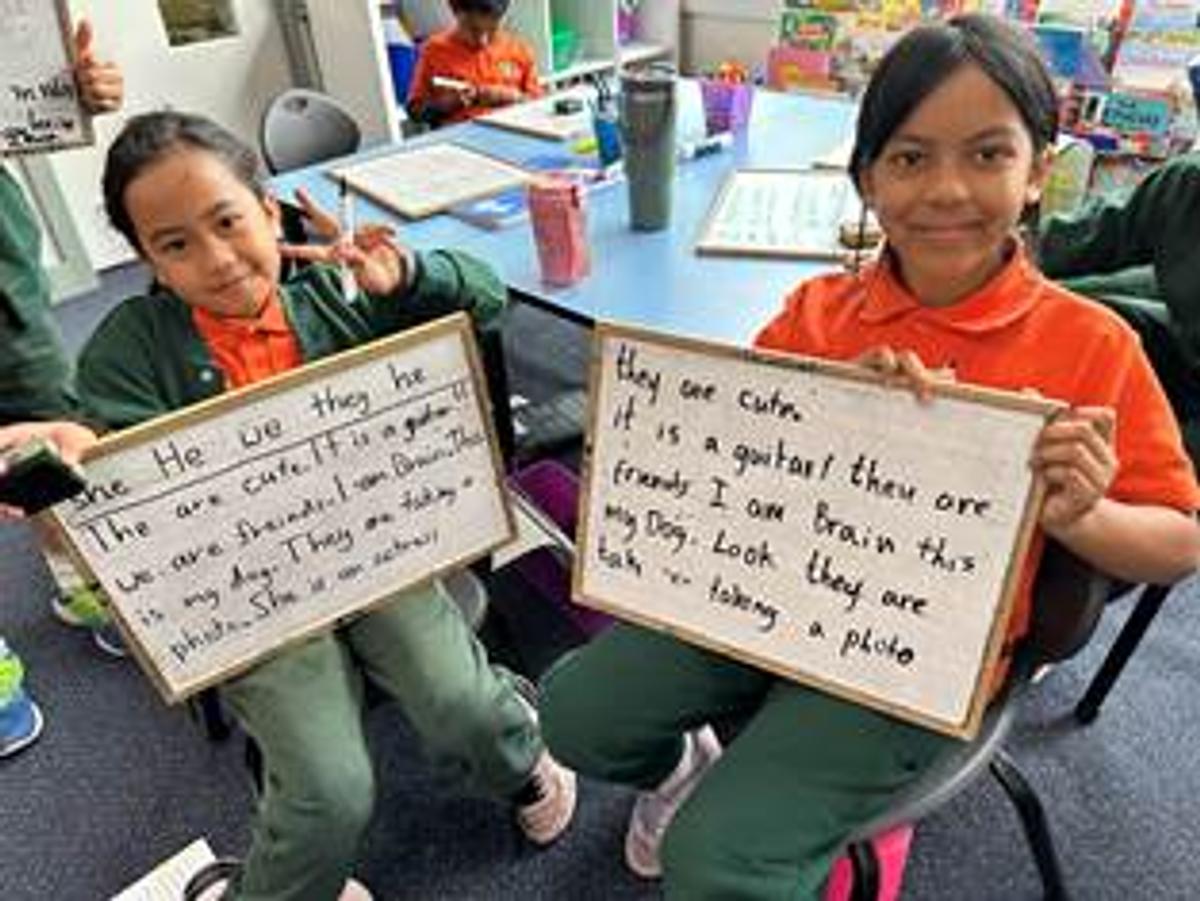 she He we they he
The are cute. It is a guitar.
we are freinds. I am Brain. This
is my dog. They are taking a
photo. She is an actress
they are cute.
it is a guitar! they are
friends I am Brain this
my Dog. Look they are
taking a photo